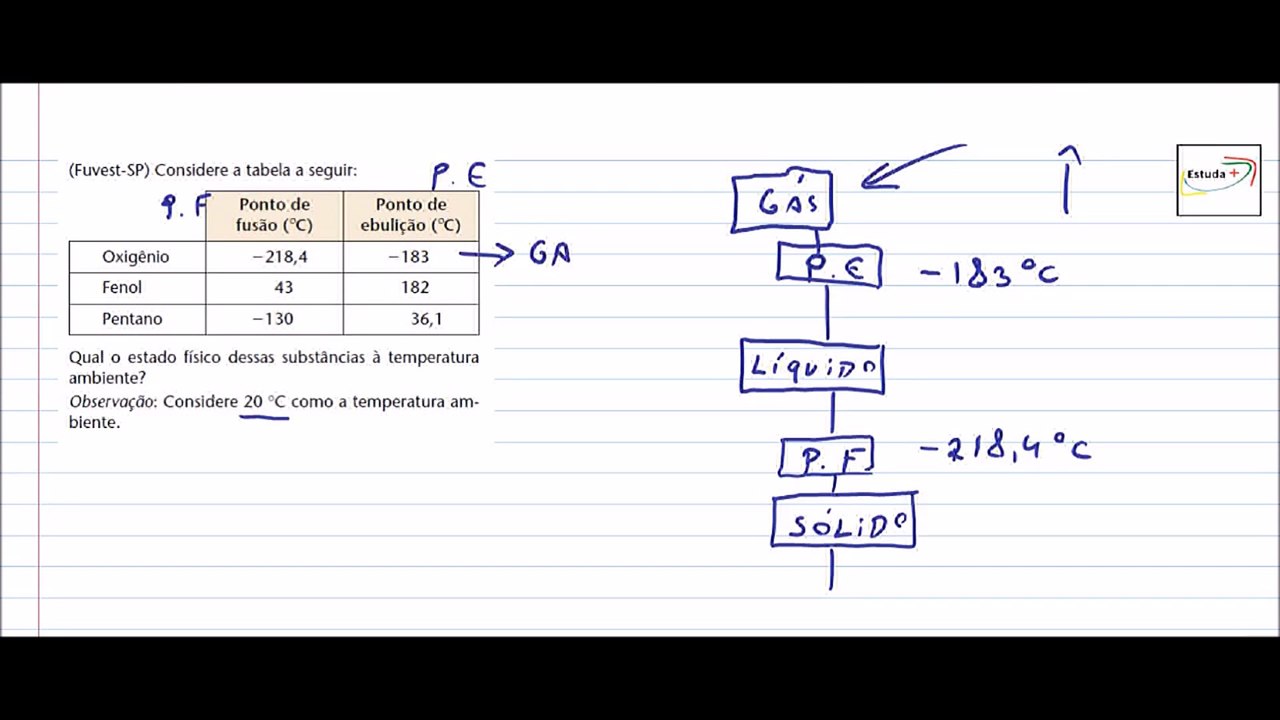 (Fuvest-SP) Considere a tabela a seguir:
P. E
P. F
Ponto de fusão (°C) Ponto de ebulição (°C)
Oxigênio −218,4 −183 → GA
Fenol 43 182
Pentano −130 36,1
Qual o estado físico dessas substâncias à temperatura
ambiente?
Observação: Considere 20 °C como a temperatura am-
biente.
GÁS
P. E −183°C
LÍQUIDO
P. F −218,4°C
SÓLIDO
Estuda +